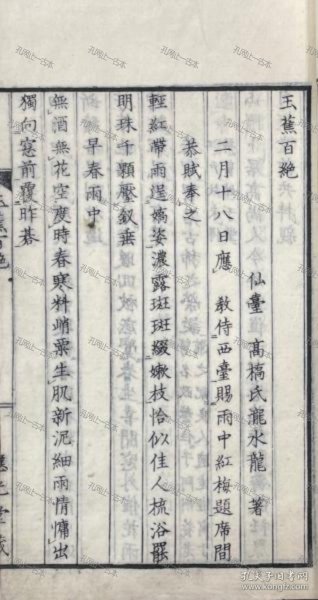 玉蕉百絶
仙臺 高橋氏瀧水龍 著
二月十八日應 教侍西臺賜雨中紅梅題席間
恭賦奉之
輕紅帶雨逞嬌姿濃露斑斑綴嫩枝恰似佳人梳浴罷
明珠千顆壓釵垂
早春雨中
無酒無花空度時春寒料峭粟生肌新泥細雨情慵出
獨向窓前覆昨棊
孔夫子旧书网